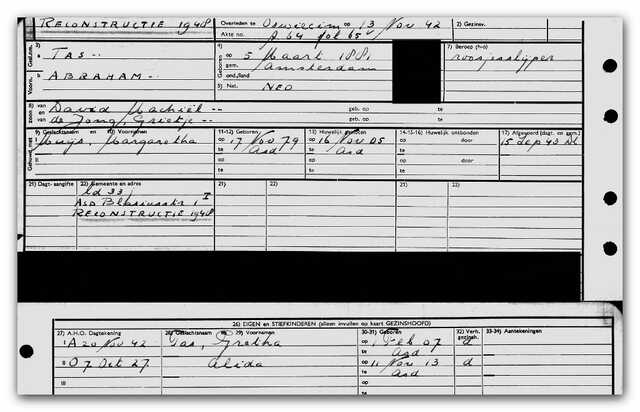 RECONSTRUCTIE 1948 Overleden te Oswiecim op 13 Nov 42 2) Gezinsv.
Akte no. A 64 fol 65
3) TAS -- 4) op 5 Maart 1881 7) Beroep (h-o)
te Amsterdam roosjesslijper
Voorn. ABRAHAM -- gem.
ond./land
5) Nat. NED
van David Machiel -- geb. op te
en de Jong, Grietje -- geb. op te
9) Geslachtsnaam en 10) Voornamen 11-12) Geboren 13) Huwelijk gesloten 14-15-16) Huwelijk ontbonden 17) Afgevoerd (dagt. en gem.)
Gehuwd met Muijs, Margaretha op 17 Nov 79 op 16 Nov 05 op door 15 Sep 43
te Asd te Asd te
op op op door
te te te
21) Dagt. aangifte 22) Gemeente en adres 21) 22) 21) 22)
Ld 33
Asd Blasiusstr 1 I
RECONSTRUCTIE 1948
26) EIGEN en STIEFKINDEREN (alleen invullen op kaart GEZINSHOOFD)
27) A.H.O. Dagtekening 28) Geslachtsnaam 29) Voornamen 30-31) Geboren 32) Verh. gezinsh. 33-34) Aantekeningen
I A 20 Nov 42 Tas, Gretha op 1 Feb 07 d
te Asd
II O 7 Oct 27 Alida op 11 Nov 13 d
te Asd
III op